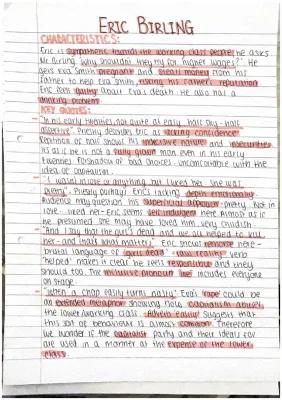 ERIC BIRLING
CHARACTERISTICS:
Eric is sympathetic towards the working class people he asks
Mr Birling "why shouldn't they try for higher wages?". He
gets Eva Smith pregnant and steals money from his
father to help Eva Smith, risking his father's reputation
Eric feels guilty about Eva's death. He also has a
drinking problem
KEY QUOTES:
- "In his early twenties, not quite at ease, half shy - half
assertive". Priestly describes Eric as lacking confidence
Repetition of half shows his indecisive nature and insecurities
it's as if he is not a fully grown man even in his early
twenties. Foreshadow of bad choices. Uncomfortable with the
idea of capitalism.
- "I wasn't in love or anything, but I liked her. She was
pretty". Priestly portrays Eric's lacking depth emotionally
Audience may question his superficial approach - pretty. Not in
love - liked her - Eric seems self indulgent here. Almost as if
he presumed she may have loved him very childish.
- "And I say that the girl's dead and we all helped to kill
her - and that's what matters" Eric shows remorse here -
brutal language of "girl's dead" - "raw reality" Verb
'helped' makes it clear he feels responsible and they
should too. The inclusive pronoun 'we' includes everyone
on stage.
- "When a chap easily turns nasty" Eva's "rape" could be
an extended metaphor showing how capitalism abuses
the lower/working class. Adverb 'easily' suggests that
this sort of behaviour is almost common. Therefore
we wonder if the capitalist party and their ideas for
are used in a manner at the expense of the lower
class